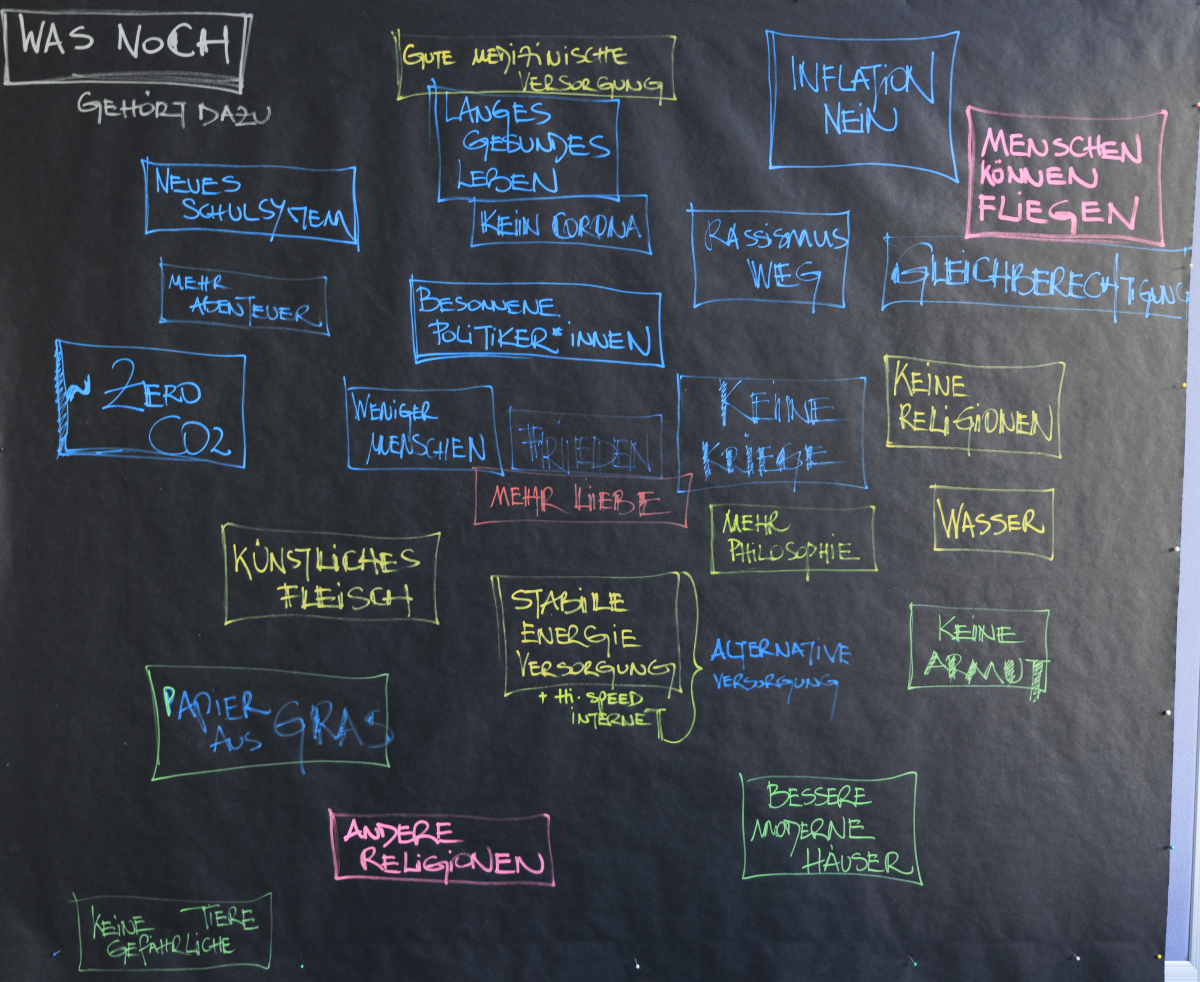 WAS NOCH
GEHÖRT DAZU
GUTE MEDIZINISCHE
VERSORGUNG
LANGES
GESUNDES
LEBEN
KEIN CORONA
INFLATION
NEIN
MENSCHEN
KÖNNEN
FLIEGEN
NEUES
SCHULSYSTEM
RASSISMUS
WEG
GLEICHBERECHTIGUNG
MEHR
ABENTEUER
BESONNENE
POLITIKER*INNEN
~ZERO
CO2
WENIGER
MENSCHEN
FRIEDEN
MEHR LIEBE
KEINE
KRIEGE
KEINE
RELIGIONEN
MEHR
PHILOSOPHIE
WASSER
KÜNSTLICHES
FLEISCH
STABILE
ENERGIE
VERSORGUNG
+ Hi-SPEED
INTERNET
ALTERNATIVE
VERSORGUNG
KEINE
ARMUT
PAPIER
AUS GRAS
ANDERE
RELIGIONEN
BESSERE
MODERNE
HÄUSER
KEINE TIERE
GEFÄHRLICHE